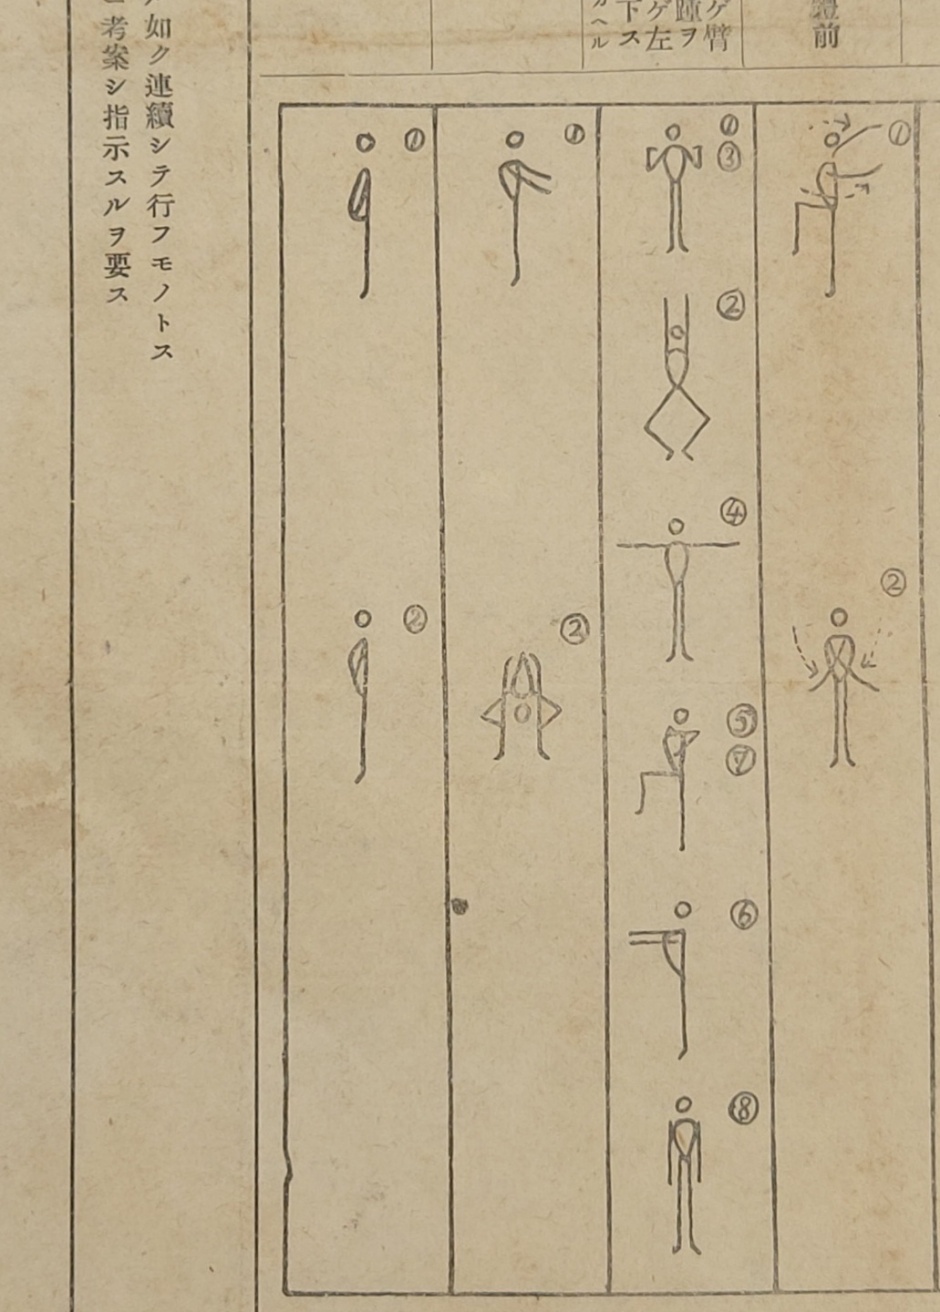 前
ゲ臂
踵ヲ
ゲ左
下ス
ヘル
①
②
①
③
②
④
⑤
⑦
⑥
⑧
①
②
①
②
如ク連續シテ行フモノトス
考案シ指示スルヲ要ス